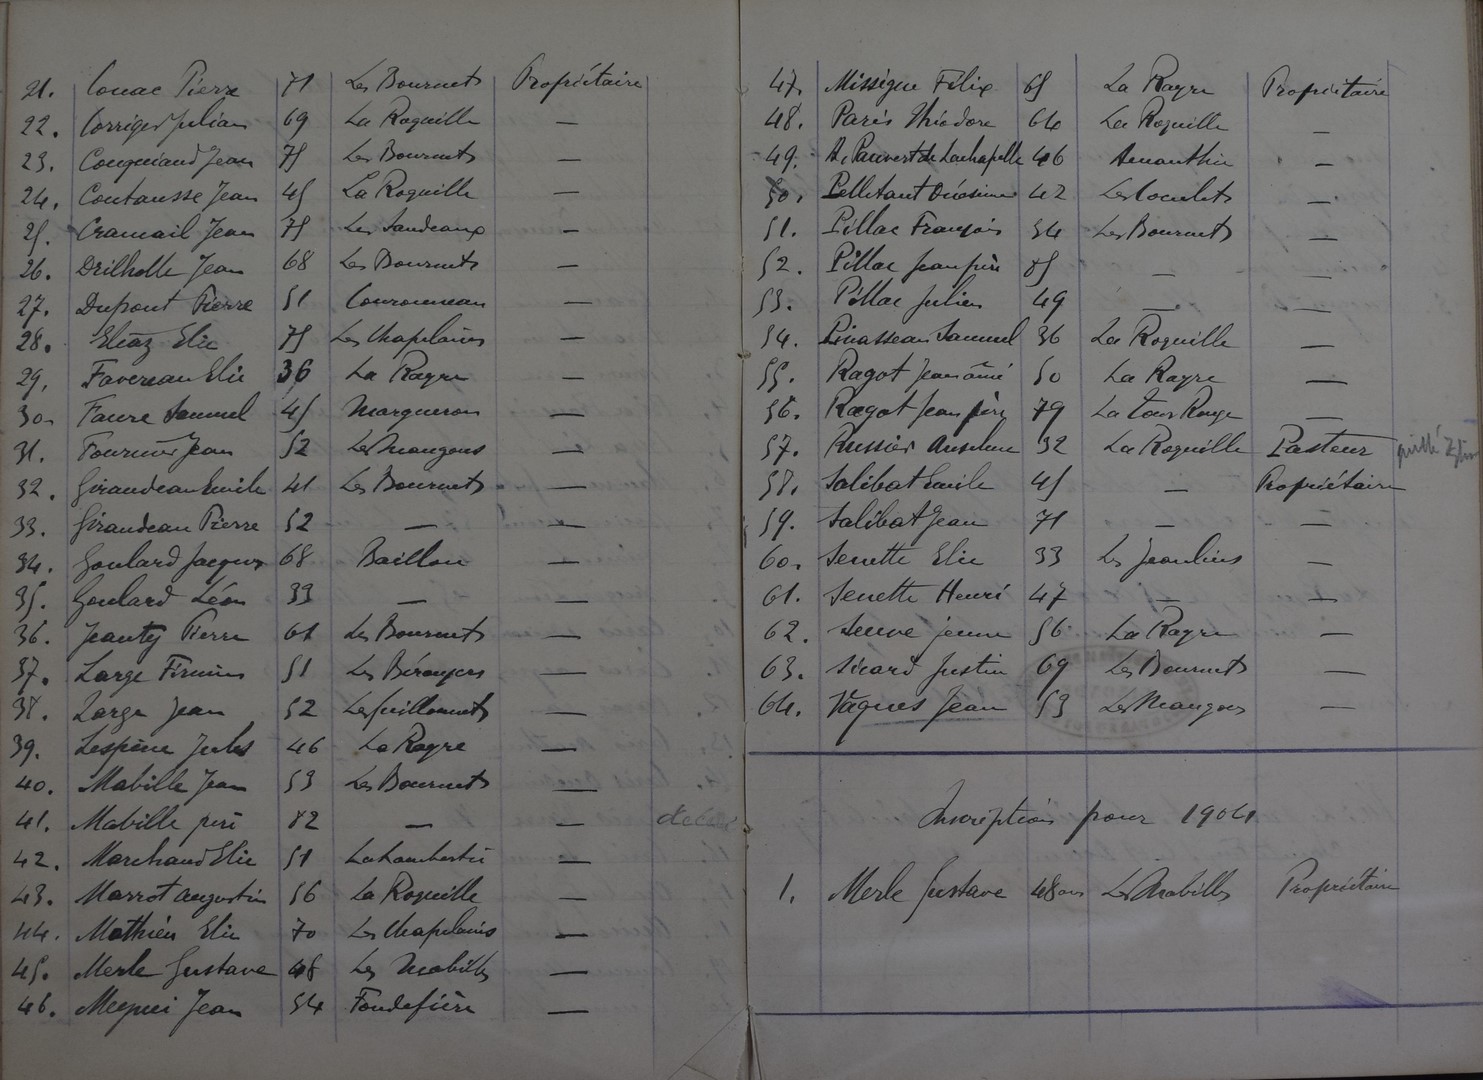 21. Couac Pierre 71 Les Bournets Propriétaire
22. Corriger Julian 69 La Roquille —
23. Couguiaud Jean 75 Les Bournets —
24. Coutausse Jean 45 La Roquille —
25. Cramail Jean 75 Les Jandeaux —
26. Drilholle Jean 68 Les Bournets —
27. Dupont Pierre 51 Couronneau —
28. Eliaz Elie 75 Les Chapelains —
29. Favereau Elie 36 La Rayre —
30. Faure Samuel 45 Margueron —
31. Fournier Jean 52 Les Mangons —
32. Giraudeau Emile 41 Les Bournets —
33. Giraudeau Pierre 52 — —
34. Goulard Jacques 68 Baillou —
35. Goulard Léon 39 — —
36. Jeanty Pierre 61 Les Bournets —
37. Large Firmin 51 Les Bérangers —
38. Large Jean 52 Les Guillonnets —
39. Lespine Jules 46 La Rayre —
40. Mabille Jean 53 Les Bournets —
41. Mabille père 82 — —
42. Marchand Elie 51 La Lambertie —
43. Marrot Augustin 56 La Roquille —
44. Mathieu Elie 70 Les Chapelains —
45. Merle Gustave 48 Les Mabilles —
46. Jean 54 Fondefière —
47. Missègue Félix 65 La Rayre Propriétaire
48. Paris Théodore 64 La Roquille —
49. de Pauvert de Lachapelle 46 —
50. Pelletant Onésime 42 —
51. Pillac François 54 Les Bournets —
52. Pillac Jean père 85 — —
53. Pillac Julien 49 — —
54. Pinasseau Samuel 36 La Roquille —
55. Ragot Jean aîné 50 La Rayre —
56. Ragot Jean père 79 La Tour Rouge —
57. Russier Anselme 32 La Roquille Pasteur
58. Salibat Emile 45 — Propriétaire
59. Salibat Jean 71 — —
60. Senette Elie 33 Les Jeanlins —
61. Senette Henri 47 — —
62. Seuve jeune 56 La Rayre —
63. Sicard Justin 69 Les Bournets —
64. Vaques Jean 53 Les Mangons —
Inscriptions pour 1904
1. Merle Gustave 48 ans Les Mabilles Propriétaire